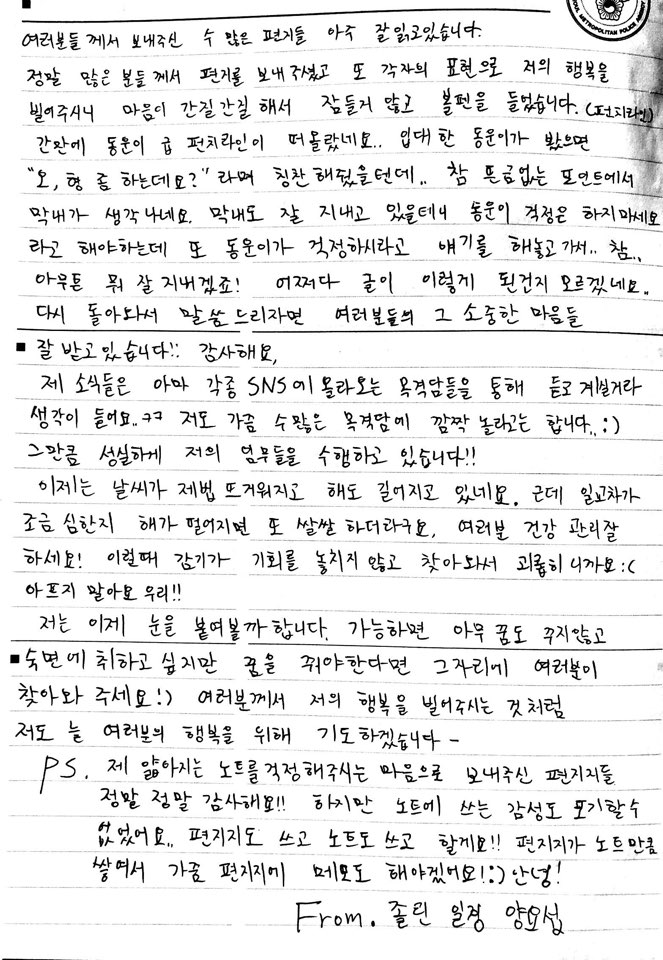 SEOUL METROPOLITAN POLICE AGENCY
여러분들께서 보내주신 수 많은 편지들 아주 잘 읽고있습니다.
정말 많은 분들께서 편지를 보내주셨고 또 각자의 표현으로 저의 행복을
빌어주시니 마음이 간질간질해서 잠들지 않고 볼펜을 들었습니다. (펀치라인)
간만에 동운이 급 펀치라인이 떠올랐네요.. 입대한 동운이가 봤으면
"오, 형 좀 하는데요?" 라며 칭찬해줬을텐데.. 참 뜬금없는 포인트에서
막내가 생각나네요. 막내도 잘 지내고 있을테니 동운이 걱정은 하지마세요
라고 해야하는데 또 동운이가 걱정하시라고 얘기를 해놓고가서.. 참..
아무튼 뭐 잘지내겠죠! 어쩌다 글이 이렇게 된건지 모르겠네요..
다시 돌아와서 말씀드리자면 여러분들의 그 소중한 마음들
잘 받고있습니다!! 감사해요,
제 소식들은 아마 각종 SNS에 올라오는 목격담들을 통해 듣고 계실거라
생각이 들어요..ㅋㅋ 저도 가끔 수많은 목격담에 깜짝 놀라고는 합니다..:)
그만큼 성실하게 저의 업무들을 수행하고 있습니다!!
이제는 날씨가 제법 뜨거워지고 해도 길어지고 있네요. 근데 일교차가
조금 심한지 해가 떨어지면 또 쌀쌀하더라구요. 여러분 건강 관리잘
하세요! 이럴때 감기가 기회를 놓치지 않고 찾아와서 괴롭히니까요:(
아프지 말아요 우리!!
저는 이제 눈을 붙여볼까합니다. 가능하면 아무 꿈도 꾸지않고
숙면에 취하고 싶지만 꿈을 꿔야한다면 그자리에 여러분이
찾아와 주세요!) 여러분께서 저의 행복을 빌어주시는 것처럼
저도 늘 여러분의 행복을 위해 기도하겠습니다-
PS. 제 얇아지는 노트를걱정해주시는 마음으로 보내주신 편지지들
정말 정말 감사해요!! 하지만 노트에 쓰는 감성도 포기할수
없었어요.. 편지지도 쓰고 노트도쓰고 할게요!! 편지지가 노트만큼
쌓여서 가끔 편지지에 메모도 해야겠어요!:) 안녕!
From. 졸린 일경 양요섭